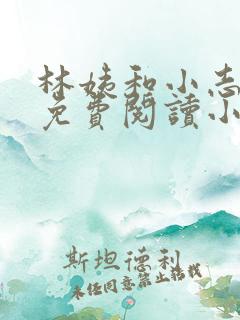 林姨和小志
免費閱讀小
斯坦德利
未经同意禁止搭载